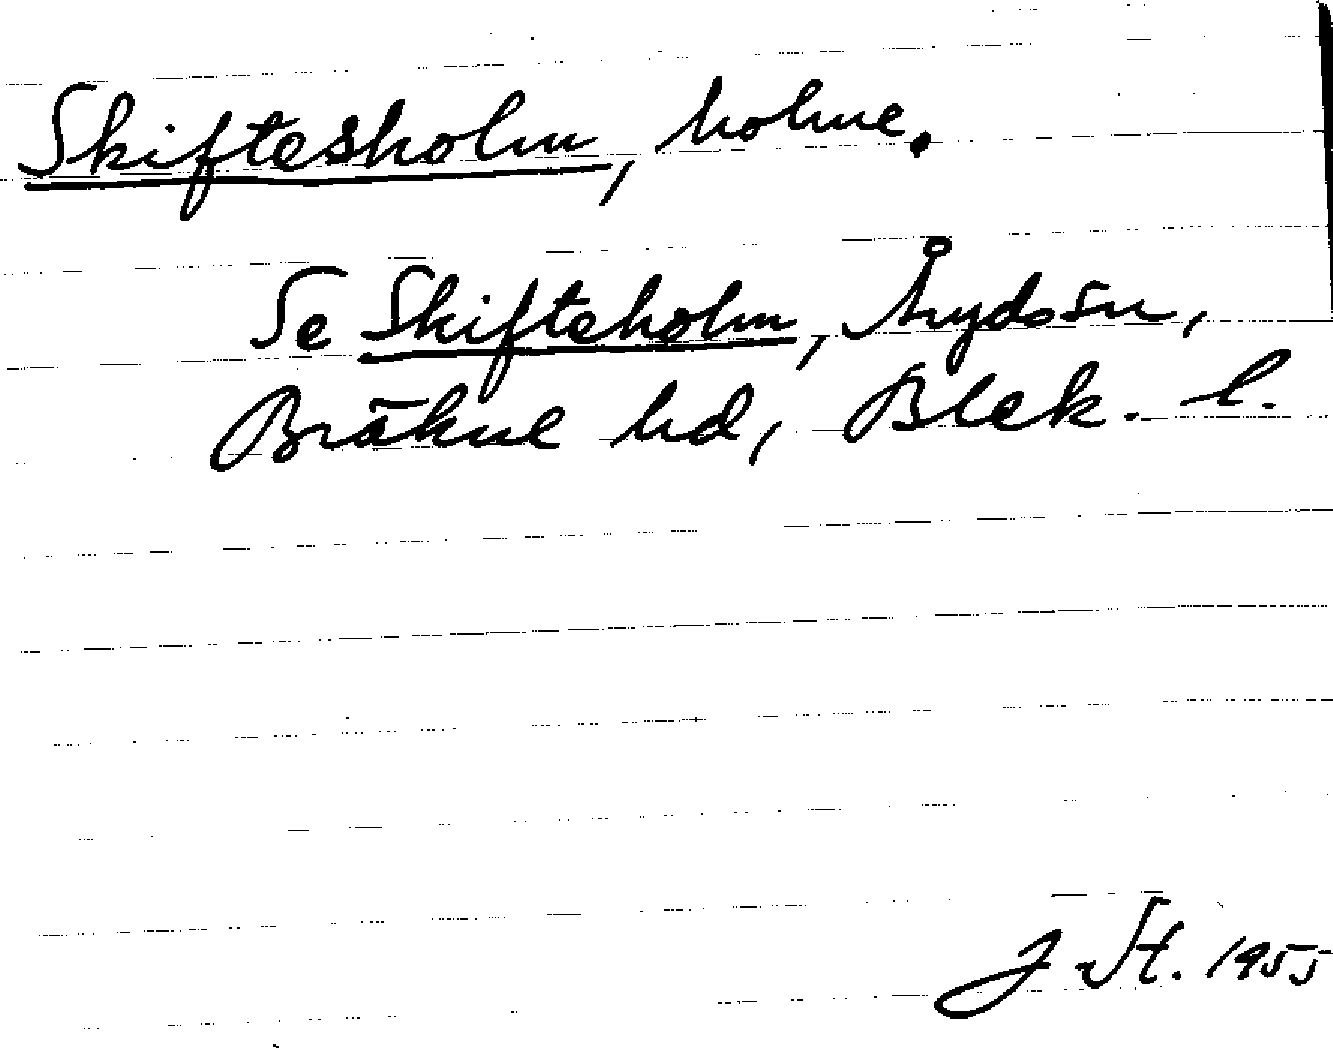 Skiftesholm, holme.
Se Skifteholm, Åryds sn,
Bräkne hd, Blek. l.
J St. 1955